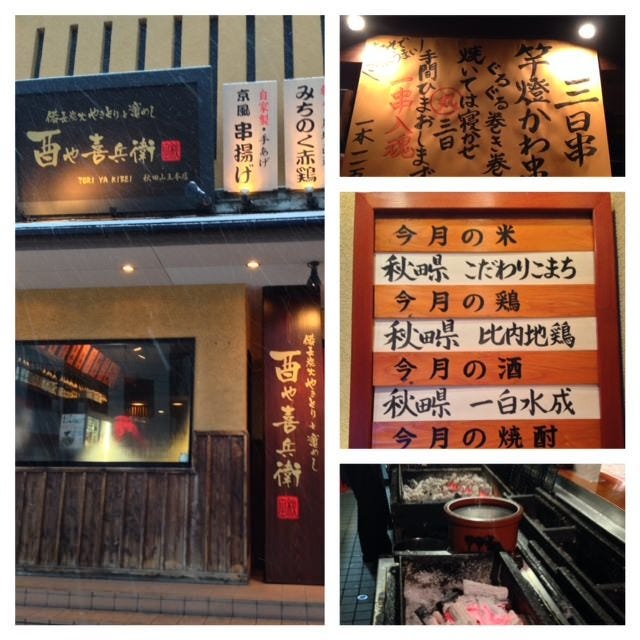 備長炭火やきとりと釜めし
酉や喜兵衛
TORI YA KIHEI 秋田山王本店
自家製・手あげ
京風 串揚げ
みちのく赤鶏
備長炭火やきとりと釜めし
酉や喜兵衛
三日串
竿燈かわ串
ぐるぐる巻き巻
焼いては寝かせ
三日
手間ひまおしまず
一串入魂
一本一五
今月の米
秋田県 こだわりこまち
今月の鶏
秋田県 比内地鶏
今月の酒
秋田県 一白水成
今月の焼酎